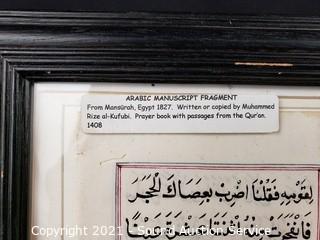 ARABIC MANUSCRIPT FRAGMENT
From Mansūrah, Egypt 1827. Written or copied by Muhammed
Rize al-Kufubi. Prayer book with passages from the Qur'an.
1408
لِقَوْمِهِ فَقُلْنَا اضْرِبْ بِعَصَاكَ الْحَجَرَ
Copyright © 2021 - AuctionNinja.com